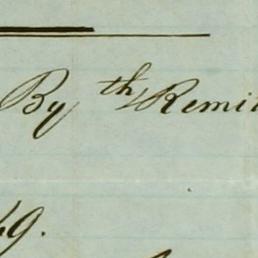 By th Remi
49.